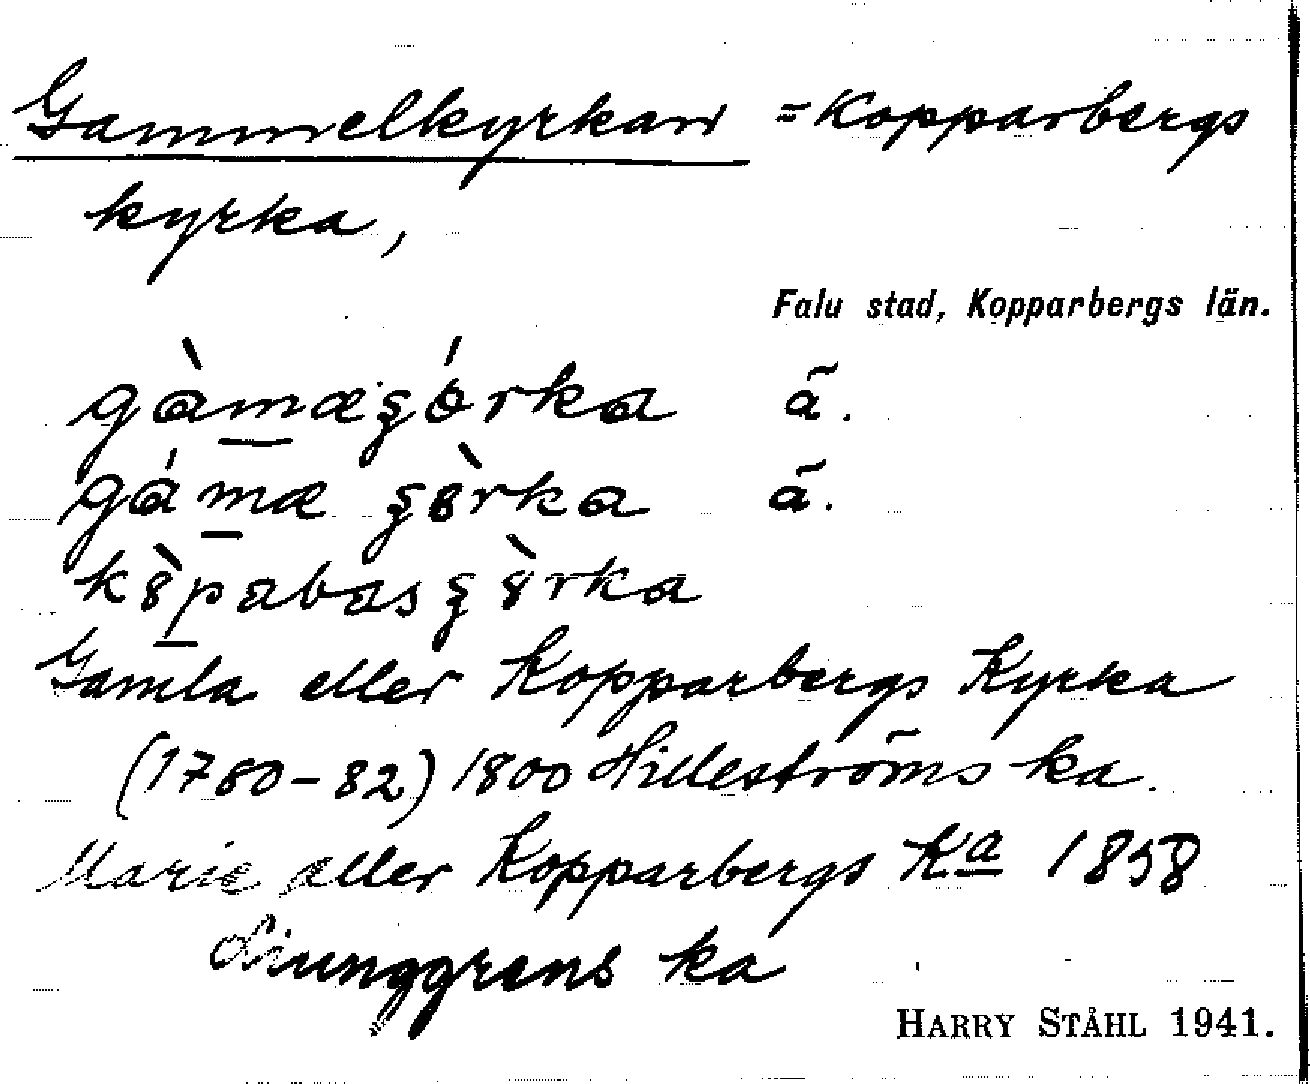 Gammelkyrkan = Kopparbergs
kyrka,
Falu stad, Kopparbergs län.
gàmæȿórka ā.
gámæ ȿòrka ā.
kòpabasȿòrka
Gamla eller Kopparbergs Kyrka
(1780-82) 1800 Hilleströms ka.
Marie eller Kopparbergs Ka 1858
Ljunggrens ka
HARRY STÅHL 1941.